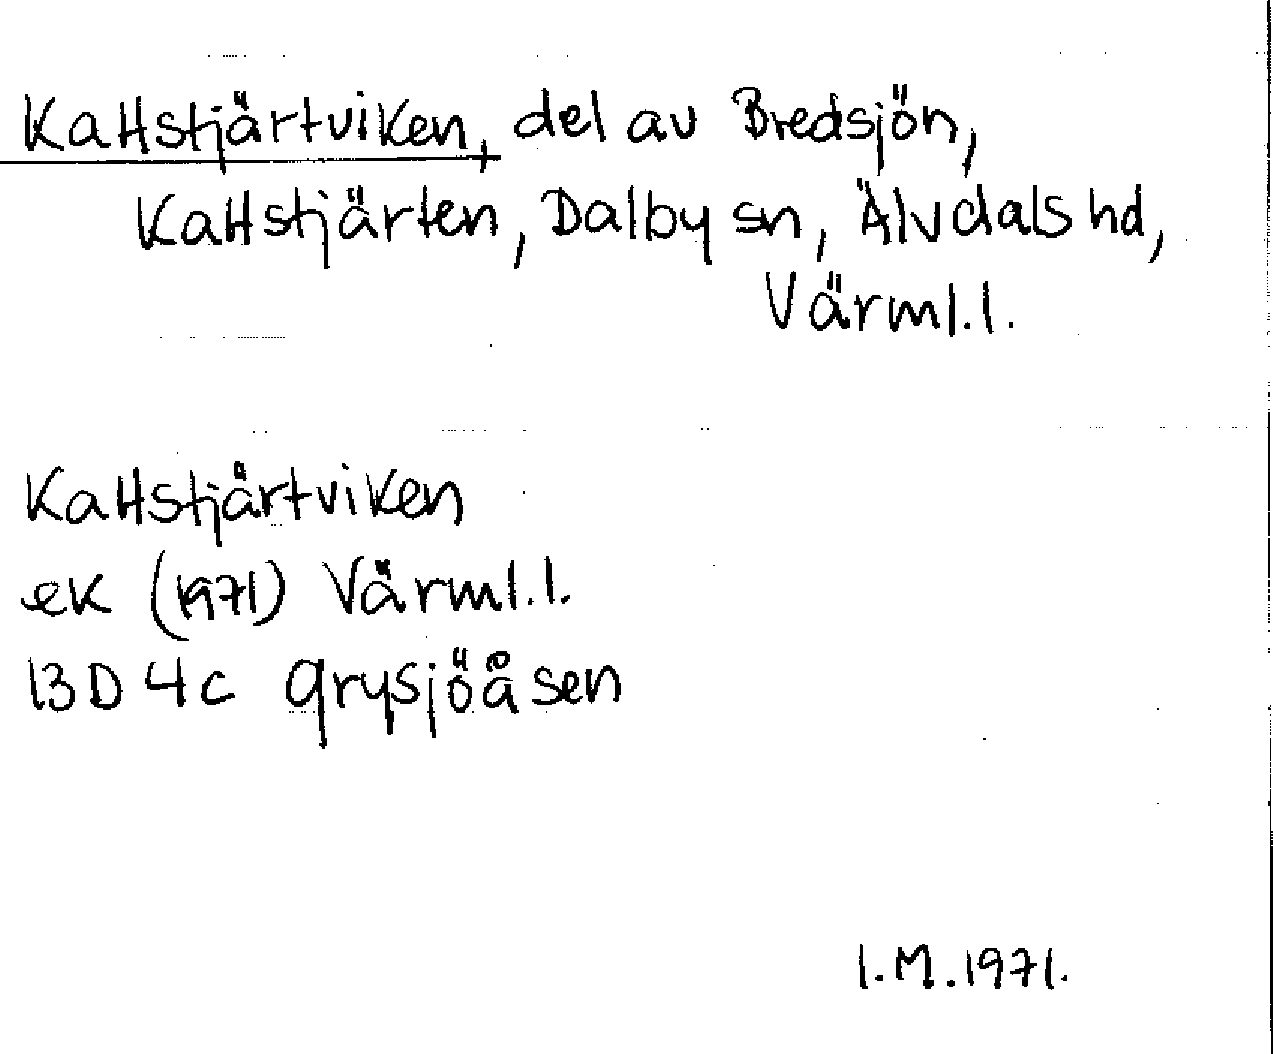 Kattstjärtviken, del av Bredsjön,
Kattstjärten, Dalby sn, Älvdals hd,
Värml.l.
Kattstjärtviken
ek (1971) Värml.l.
13D 4c Grysjöåsen
I.M.1971.